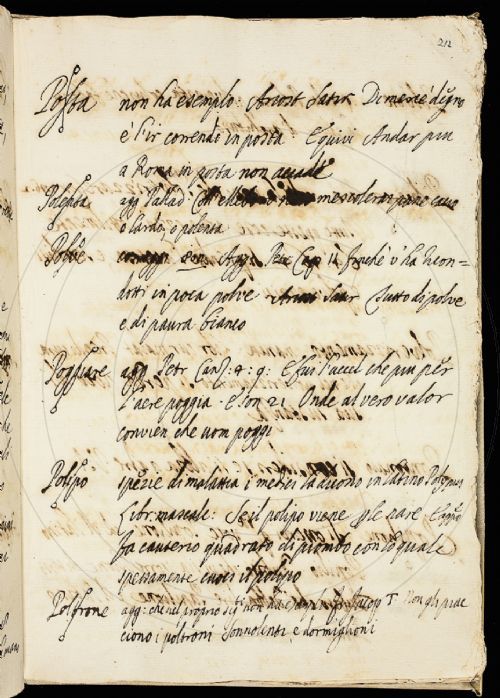 212
Posta non ha esempio: Ariost Satir. Di mercè degno
è l'ir correndo in posta. E quivi Andar piu
a Roma in posta non accade
Polenta agg Pallad: mescolerai pane
o lardo, o polenta
Polve Agg. Petr Cap 11 finchè v'ha ricon-
dotti in poca polve Ariost Satir Tutto di polve
e di paura bianco
Poggiare agg Petr Canz: 8: 9: E fui l'uccel che piu per
l'aere poggia. E Son 21 Onde al vero valor
convien che uom poggi
Polipo spezie di malattia i medici la dicono in latino Polypus
Libr: mascalc: Se il polipo viene
fa cauterio quadrato di piombo con lo quale
spessamente cuoci il polipo
Poltrone agg: che nel proprio non ha Jacop T. Non gli piac
ciono i poltroni sonnolenti e dormiglioni